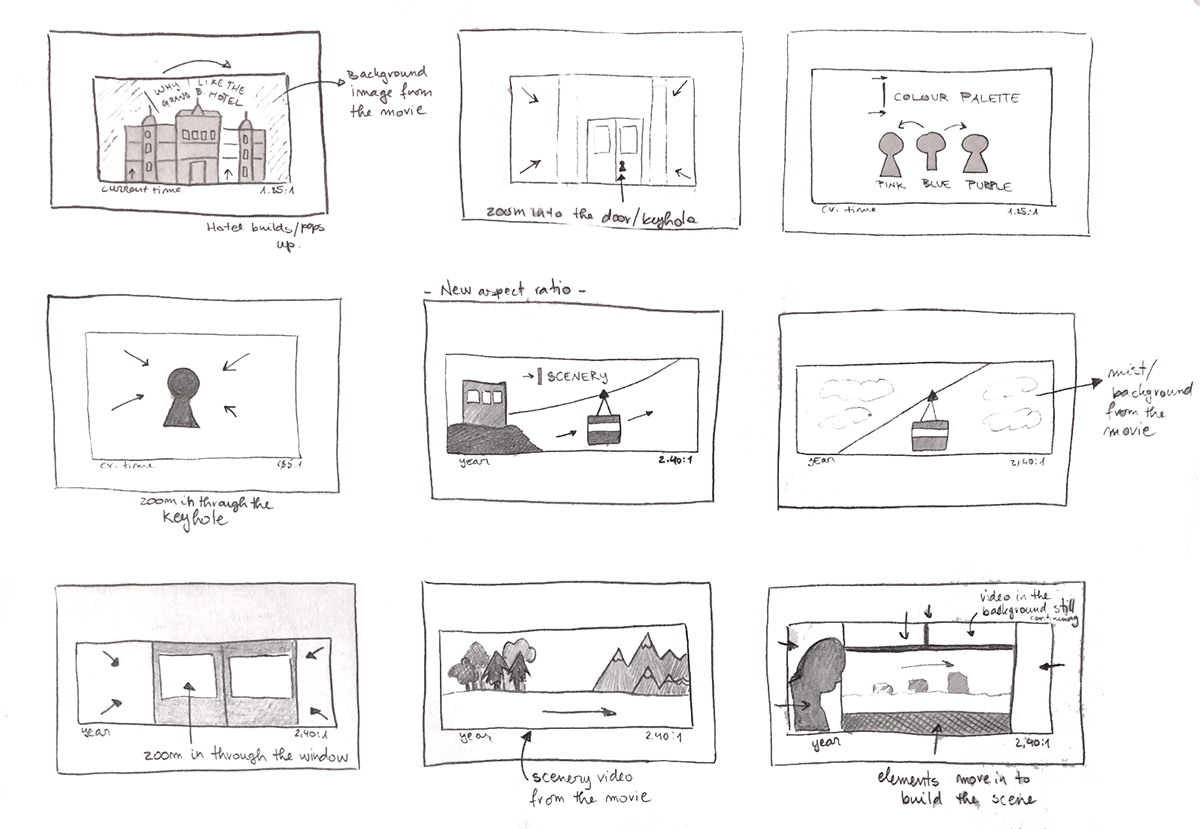 WHY I LIKE THE
GRAND B HOTEL
Background
image from
the movie
current time
1.25:1
Hotel builds/pops
up.
zoom into the door/keyhole
COLOUR PALETTE
PINK
BLUE
PURPLE
cr. time
1.25:1
cr. time
zoom in through the
keyhole
- New aspect ratio -
SCENERY
year
2.40:1
year
2,40:1
mist/
background
from the
movie
year
2,40:1
zoom in through the window
year
2.40:1
scenery video
from the movie
video in the
background still
continuing
year
2,40:1
elements move in to
build the scene